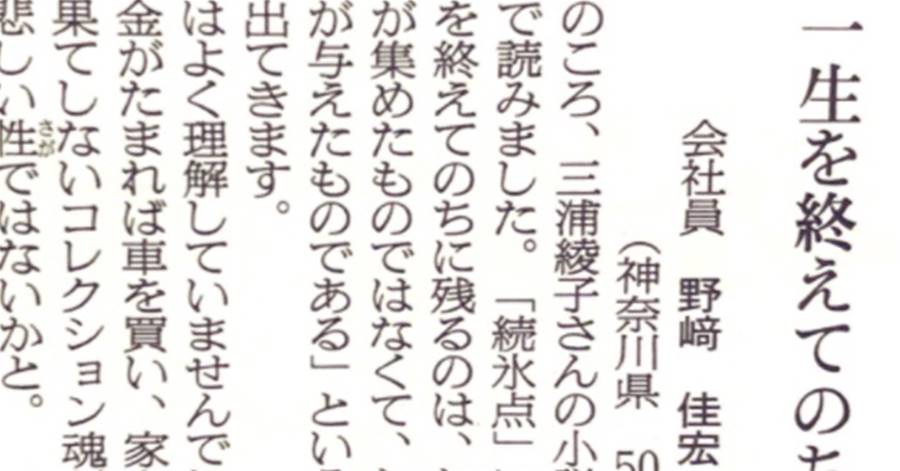 一生を終えてのち
会社員　野﨑　佳宏
（神奈川県　50
のころ、三浦綾子さんの小説
で読みました。「続氷点」
を終えてのちに残るのは、
が集めたものではなくて、
が与えたものである」という
出てきます。
はよく理解していませんで
金がたまれば車を買い、家
果てしないコレクション魂
悲しい性さがではないかと。